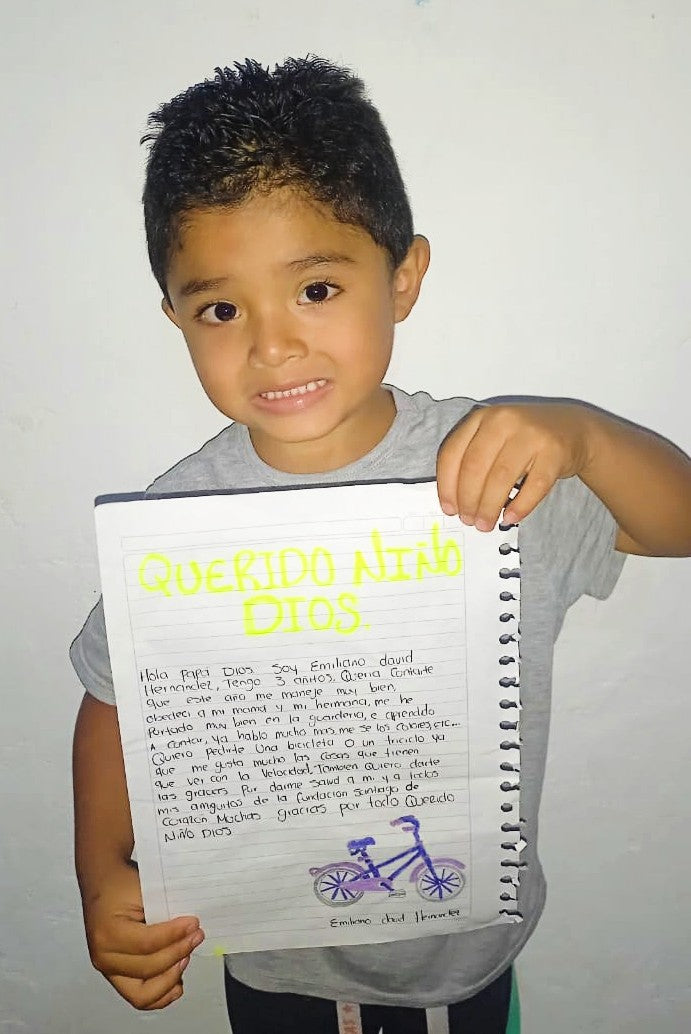 QUERIDO NIÑO
DIOS.
Hola Papá DIOS Soy Emiliano david
Hernandez, Tengo 3 añitos. Queria Contarte
que este año me maneje muy bien,
obedeci a mi mamá y mi hermana, me he
Portado muy bien en la guarderia, e aprendido
A contar, ya hablo mucho mas, me se los colores, ETC...
Quiero Pedirte Una bicicleta O un triciclo ya
que me gusta mucho las cosas que tienen
que ver con la Velocidad, Tambien Quiero darte
las gracias Por darme Salud a mi y a todos
mis amiguitos de la fundacion Santiago de
Corazón Muchas gracias por todo Querido
Niño DIOS
Emiliano david Hernandez